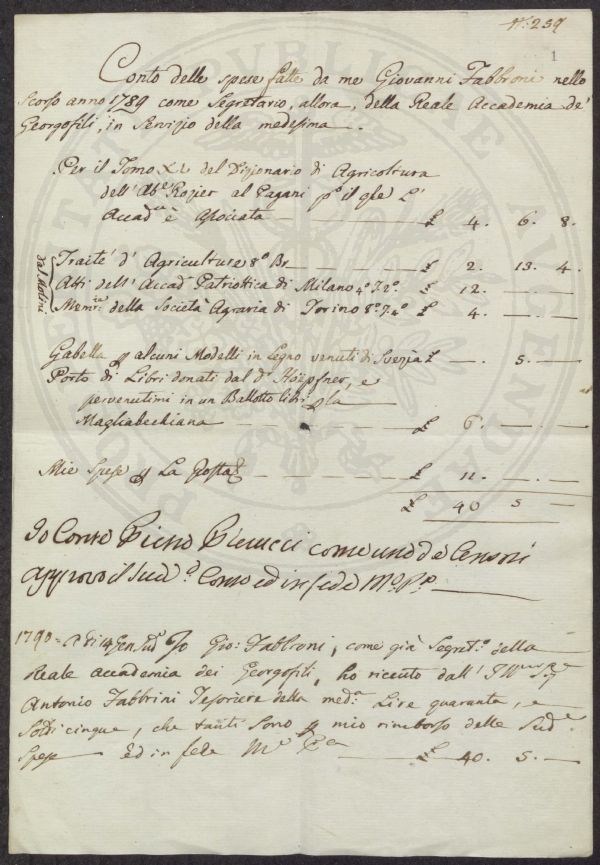 N.° 239
1
Conto delle spese fatte da me Giovanni Fabbroni nello
scorso anno 1789 come Segretario, allora, della Reale Accademia de'
Georgofili, in Servizio della medesima.
Per il Tomo XI del Dizionario di Agricoltura
dell'Ab.e Rozier al Pagani p. il qle L'
Accad.a è Associata £ 4. 6. 8.
Traité d'Agriculture 8.° Br £ 2. 13. 4.
Atti dell'Accad. Patriottica di Milano 4.° T. 2.° £ 12. — —
Mem.rie della Società Agraria di Torino 8.° £ 4. — —
Gabella p alcuni Modelli in Legno venuti di Svezia £ —. 5. —
Porto di Libri donati dal d.r Höpfner, e
pervenutimi in un Ballotto libri p la
Magliabechiana £ 6. — —
Mie Spese p La Posta £ 11. — —
£ 40 5 —
Io Conte Pierucci come uno de Censori
approvo il Sud.o Conto ed in fede M.o P.p.
1790 = A di 14 Gen. Sud.o Io Gio: Fabbroni, come già Segret.o della
Reale Accademia dei Georgofili, ho ricevuto dall'
Antonio Fabbrini Tesoriere della med.a Lire quaranta, e
Soldi cinque, che tanti sono p mio rimborso delle Sud.e
Spese ed in fede M.o P.a £ 40. 5. —
PRO PUBLICAE AUGENDAE